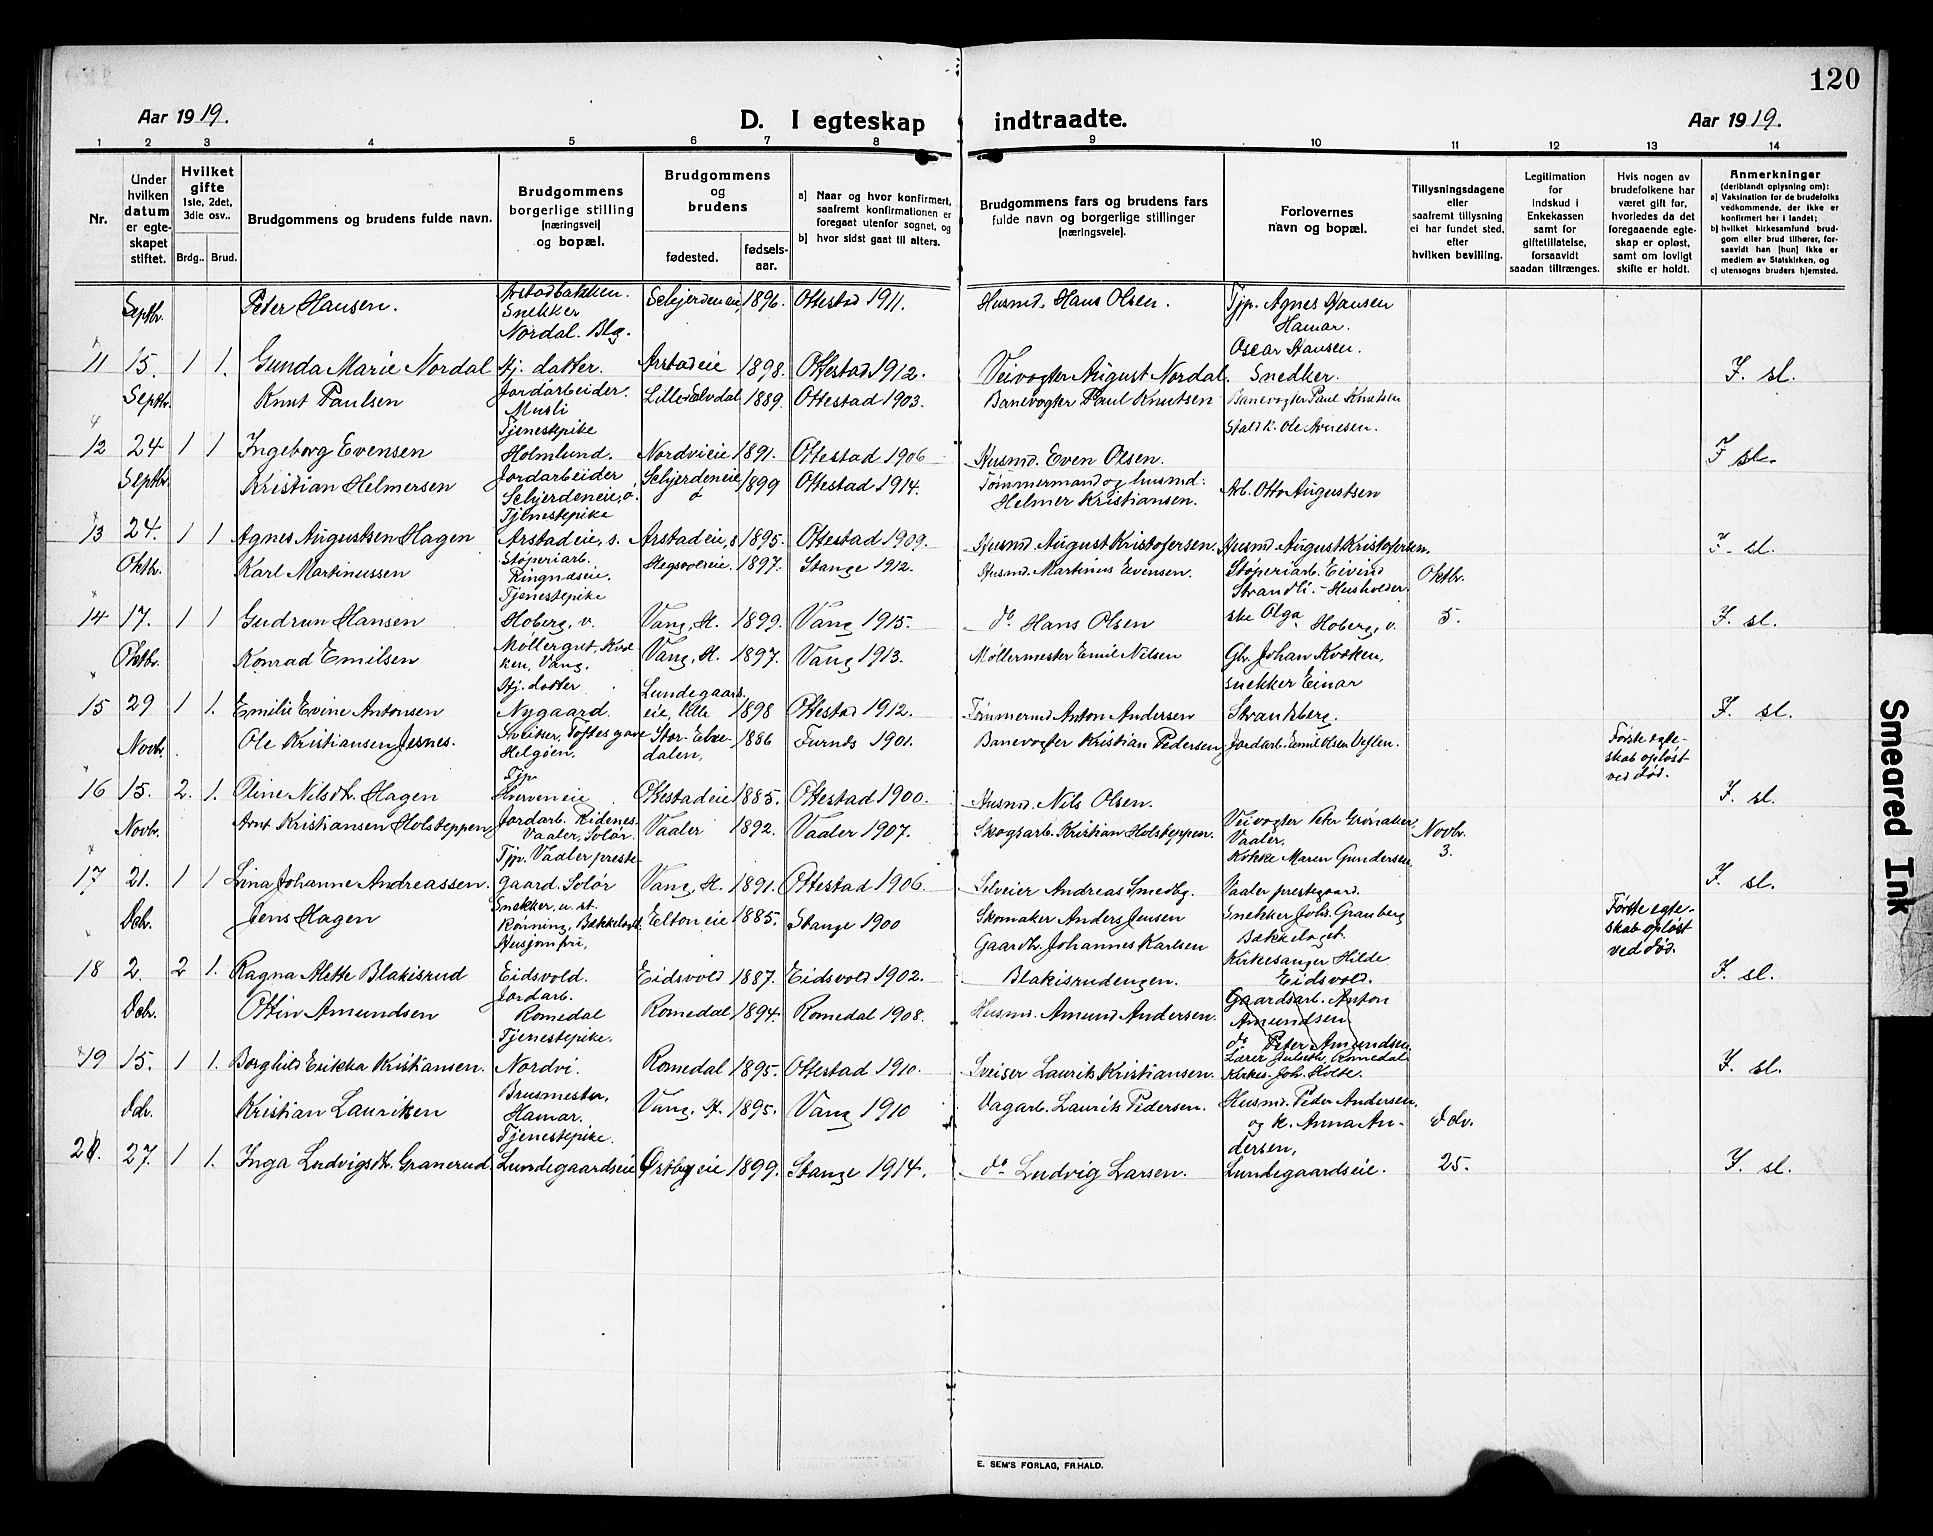 120
Aar 1919.
D. I egteskap indtraadte.
Aar 1919.
1 2 3 4 5 6 7 8 9 10 11 12 13 14
Nr.
Under hvilken datum er egteskapet stiftet.
Hvilket gifte 1ste, 2det, 3die osv..
Brdg.. Brud.
Brudgommens og brudens fulde navn.
Brudgommens borgerlige stilling (næringsvei) og bopæl.
Brudgommens og brudens
fødested.
fødsels-aar.
a) Naar og hvor konfirmert, saafremt konfirmationen er foregaat utenfor sognet, og
b) hvor sidst gaat til alters.
Brudgommens fars og brudens fars fulde navn og borgerlige stillinger (næringsveie).
Forlovernes navn og bopæl.
Tillysningsdagene eller saafremt tillysning ei har fundet sted, efter hvilken bevilling.
Legitimation for indskud i Enkekassen samt for giftetillatelse, forsaavidt saadan tiltrænges.
Hvis nogen av brudefolkene har været gift før, hvorledes da det foregaaende egteskap er opløst, samt om lovligt skifte er holdt.
Anmerkninger (deriblandt oplysning om):
a) Vaksination for de brudefolks vedkommende, der ikke er konfirmert her i landet;
b) hvilket kirkesamfund brudgom eller brud tilhører, forsaavidt han (hun) ikke er medlem av Statskirken, og
c) utensogns bruders hjemsted.
Septbr. Peter Hansen. Arstadbakken. Snekker Schjerdeneie, 1896. Ottestad 1911. Husmd. Hans Olsen. Tjp. Agnes Hansen Hamar.
11 15. 1 1. Gunda Marie Nordal Nordal. Blg. Hj. datter. Arstadeie 1898. Ottestad 1912. Veivogter August Nordal. Oscar Hansen. Snedker. F. sl.
Septbr. Knut Paulsen Jordarbeider. Musli Lille Elvdal 1889. Ottestad 1903. Banevogter Paul Knutsen Banevogter Paul Knutsen
12 24 1 1 Ingeborg Evensen Tjenestepike Holmlund. Nordvieie 1891. Ottestad 1906 Husmd. Even Olsen. Staldk. Ole Arnesen. F sl.
Septbr. Kristian Helmersen Jordarbeider Schjerdeneie, ö. Schjerdeneie ö 1899 Ottestad 1914. Tømmermand og husmd. Helmer Kristiansen. Arb. Otto Augustsen
13 24. 1 1 Agnes Augustsen Hagen Tjenestepike Arstadeie, s. Arstadeie, s 1895. Ottestad 1909. Husmd. August Kristofersen. Husmd August Kristofersen. F. sl.
Oktbr. Karl Martinussen Støperiarb. Ringnæseie. Hegsvoleie. 1897. Stange 1912. Husmd. Martinus Evensen. Støperiarb. Eivind Strandli. - Husholder- Oktbr.
14 17. 1 1 Gudrun Hansen Tjenestepike Hoberg, v. Vang, H. 1899. Vang 1915. do Hans Olsen ske Olga Hoberg, v. 5. F. sl.
Oktbr. Konrad Emilsen Møllergut, Kvæken, Vang. Vang, H. 1897. Vang 1913. Møllermester Emil Nilsen Gbr. Johan Kvæken,
15 29 1 1. Emilie Evine Antonsen Hj. datter Nygaard. Lundegaardseie, 1898 Ottestad 1912. Tømmermd Anton Andersen snekker Einar Strandberg. F. sl.
Novbr. Ole Kristiansen Jesnes. Helgøen. Stor-Elvedalen, 1886 Furnes 1901. Banevogter Kristian Pedersen Jordarb. Emil Olsen Første egteskab opløst ved død.
16 15. 2. 1. Oline Nilsdt. Hagen Tjp Hverveneie Ottestadeie 1885. Ottestad 1900. Husmd. Nils Olsen. F. sl.
Novbr. Arnt Kristiansen Holsteppen Jordarb. Vaaler, Solør. Vaaler 1892. Vaaler 1907. Skogsarb. Kristian Holsteppen. Veivogter Peter Grønaker, Vaaler, Novbr. 3.
17 21. 1 1 Lina Johanne Andreassen. Tjp. Vaaler prestegaard Solør Vang, H. 1891. Ottestad 1906. Selveier Andreas Smedbg. Kokke Maren Gundersen, Vaaler prestegaard. F. sl.
Dcbr. Jens Hagen Snekker u. st. Rønning, Bækkelaget. Eltoneie 1885. Stange 1900 Skomaker Anders Jensen Snekker Johs. Granberg Bækkelaget. Første egteskab opløst ved død.
18 2. 2 1. Ragna Alette Blakisrud Husjomfru, Eidsvold. Eidsvold 1887. Eidsvold 1902. Gaardbr. Johannes Karlsen Blakisrudengen. Kirkesanger Hilde Eidsvold. F. sl.
Dcbr. Ottin Amundsen Jordarb. Romedal Romedal 1894. Romedal 1908. Husmd. Amund Andersen. Gaardsarb. Anton Amundsen do Peter Amundsen
19 15. 1 1. Borghild Erikka Kristiansen. Tjenestepike. Nordvi. Romedal 1895. Ottestad 1910. Sveiser Laurits Kristiansen. Lærer Romedal Kirkes. Joh. Holte. F. sl.
Dcbr. Kristian Lauritsen Brusmester, Hamar. Vang, H. 1895. Vang 1910 Dagarb. Laurits Pedersen. Husmd. Peter Andersen og k. Anna Andersen, Dcbr.
20. 27. 1 1. Inga Ludvigsdt. Granerud Tjenestepike. Lundegaardseie Østbyeie 1899. Stange 1914. do Ludvig Larsen. Lundegaardseie. 25. F. sl.
E. SEM'S FORLAG, FR.HALD.
Smeared Ink